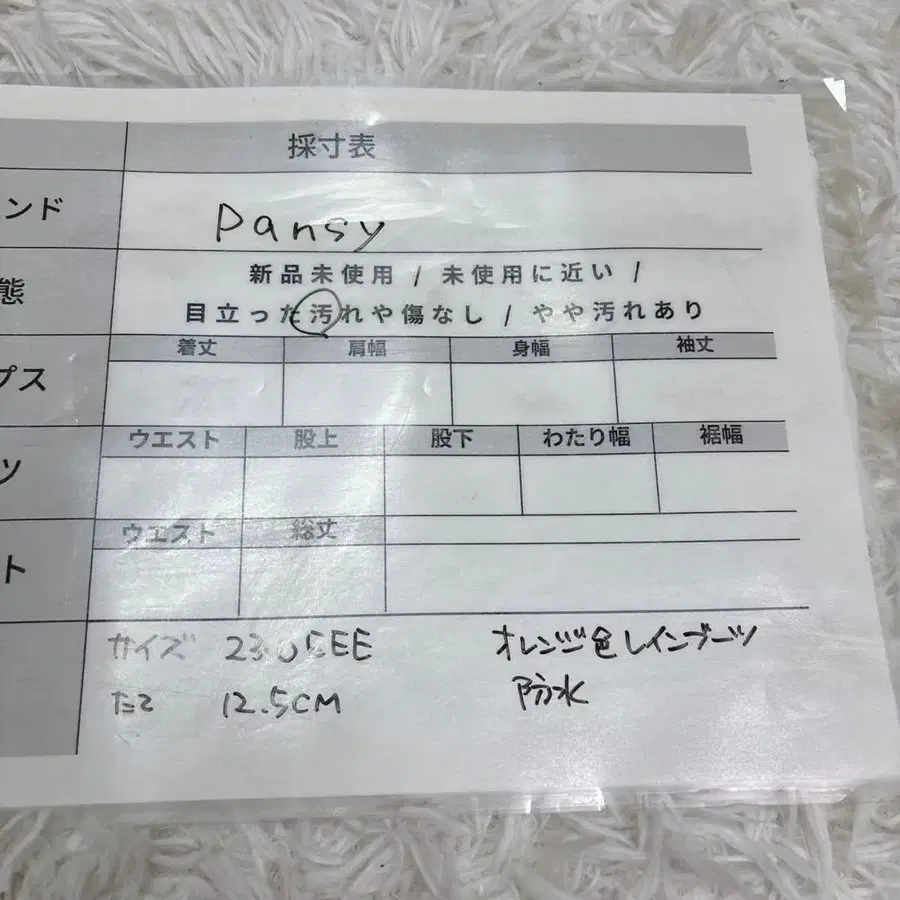 採寸表
ンド
Pansy
態
新品未使用 / 未使用に近い /
目立った汚れや傷なし / やや汚れあり
着丈 肩幅 身幅 袖丈
プス
ウエスト 股上 股下 わたり幅 裾幅
ツ
ウエスト 総丈
ト
サイズ 23.0EEE オレンジ色レインブーツ
たて 12.5CM 防水